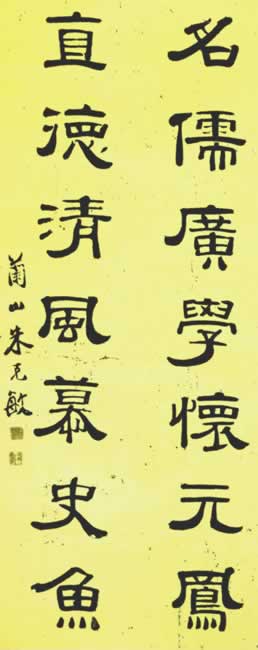 名儒廣學懷元鳳
直德清風慕史魚
蕳山朱克敏